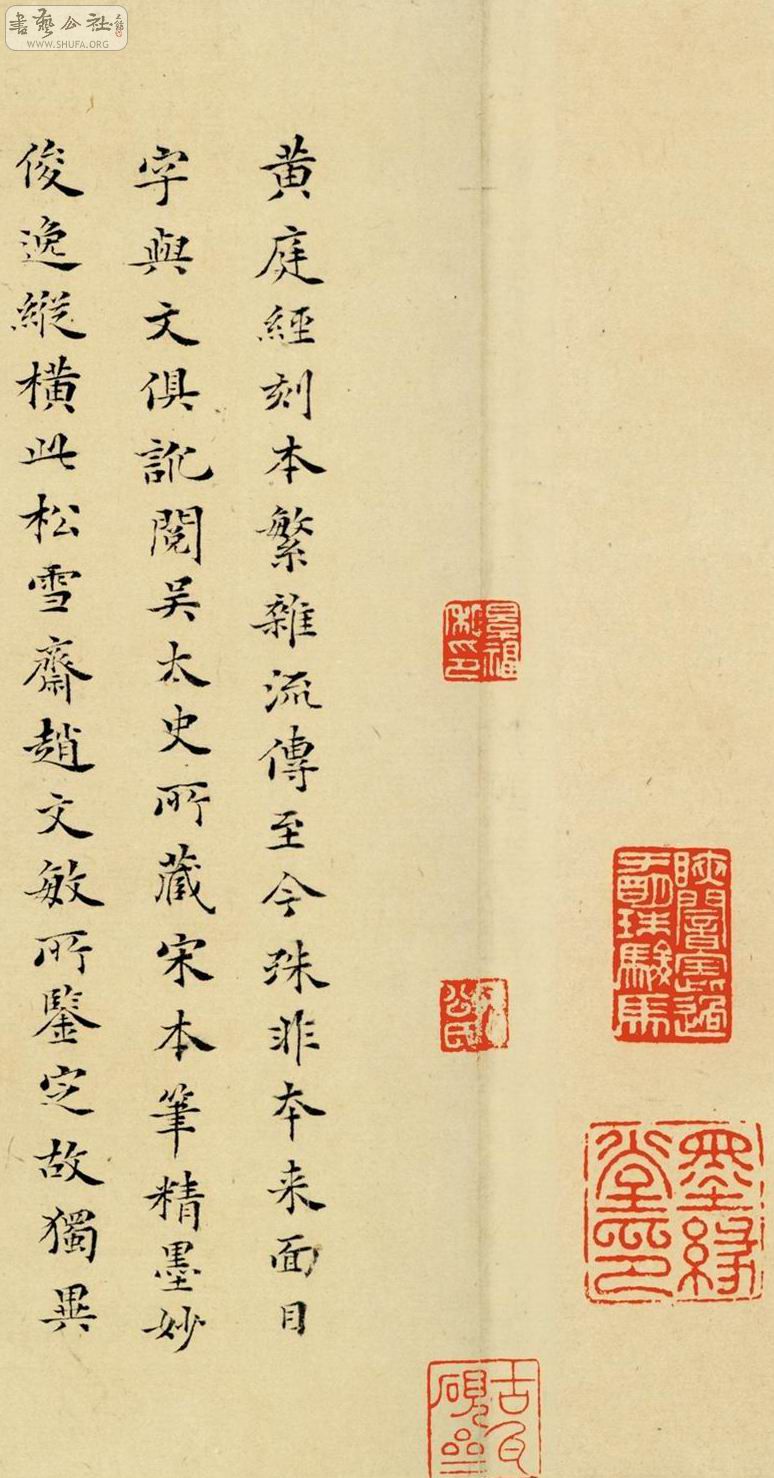 書藝公社
WWW.SHUFA.ORG
黄庭經刻本繁雜流傳至今殊非本来面目
字與文俱訛閱吴太史所藏宋本筆精墨妙
俊逸縱橫此松雪齋趙文敏所鑒定故獨異
景福私印
墨緣堂印